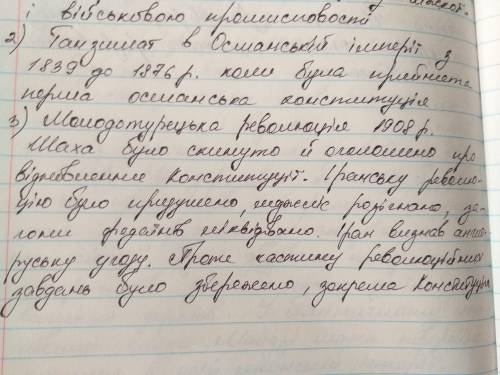 і військового промисловості
2) Танзимат в Османській імперії з
1839 до 1876 р. коли була прийнята
перша османська конституція
3) Молодотурецька революція 1908 р.
Шаха було скинуто й оголошено про
відновлення Конституції. Іранську револю-
цію було придушено, меджліс розігнано, за-
гони федаїнів ліквідовано. Іран визнав англо
руську угоду. Проте частину революційних
завдань було збережено, зокрема Конституцію